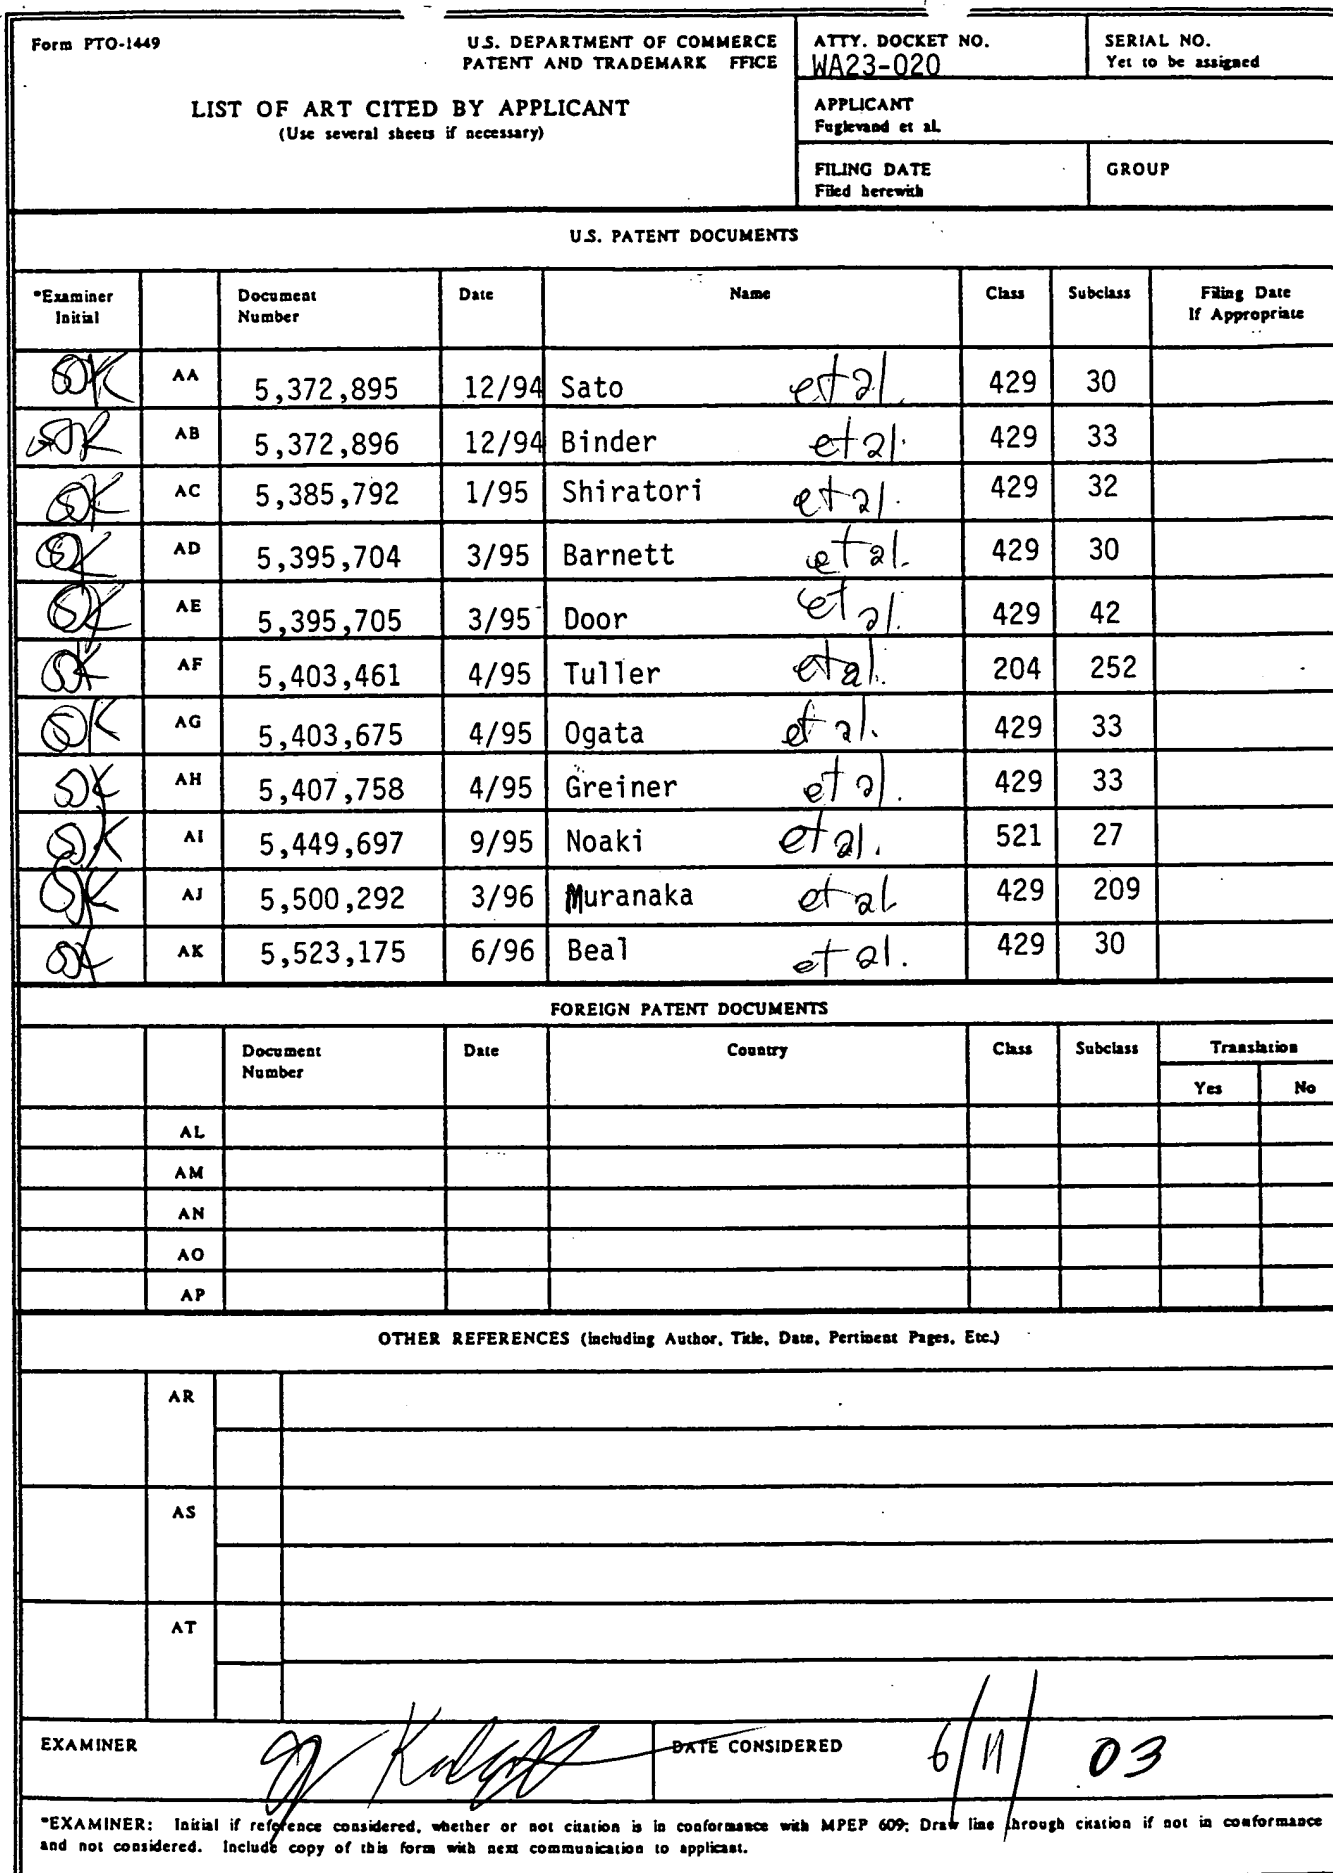 Form PTO-1449
U.S. DEPARTMENT OF COMMERCE
PATENT AND TRADEMARK FFICE
ATTY. DOCKET NO.
WA23-020
SERIAL NO.
Yet to be assigned
LIST OF ART CITED BY APPLICANT
(Use several sheets if necessary)
APPLICANT
Fuglevand et al.
FILING DATE
Filed herewith
GROUP
U.S. PATENT DOCUMENTS
*Examiner Initial Document Number Date Name Class Subclass Filing Date If Appropriate
SK AA 5,372,895 12/94 Sato et al. 429 30
SK AB 5,372,896 12/94 Binder et al. 429 33
SK AC 5,385,792 1/95 Shiratori et al. 429 32
SK AD 5,395,704 3/95 Barnett et al. 429 30
SK AE 5,395,705 3/95 Door et al. 429 42
SK AF 5,403,461 4/95 Tuller et al. 204 252
SK AG 5,403,675 4/95 Ogata et al. 429 33
SK AH 5,407,758 4/95 Greiner et al. 429 33
SK AI 5,449,697 9/95 Noaki et al. 521 27
SK AJ 5,500,292 3/96 Muranaka et al 429 209
SK AK 5,523,175 6/96 Beal et al. 429 30
FOREIGN PATENT DOCUMENTS
Document Number Date Country Class Subclass Translation
Yes No
AL
AM
AN
AO
AP
OTHER REFERENCES (Including Author, Title, Date, Pertinent Pages, Etc.)
AR
AS
AT
EXAMINER
DATE CONSIDERED 6/11/03
*EXAMINER: Initial if reference considered, whether or not citation is in conformance with MPEP 609; Draw line through citation if not in conformance
and not considered. Include copy of this form with next communication to applicant.